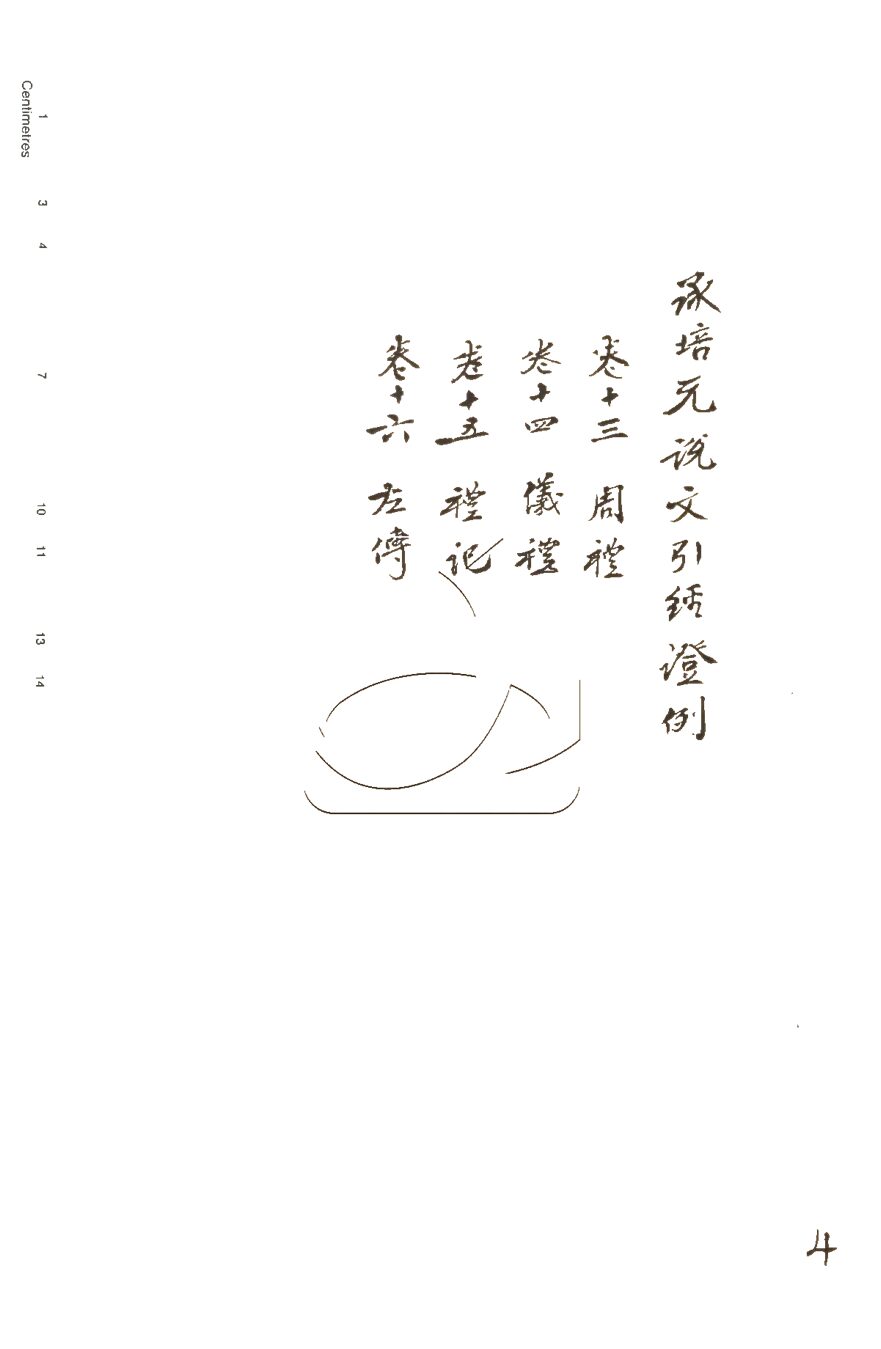 承培元说文引经證例
卷十三 周禮
卷十四 儀禮
卷十五 禮记
卷十六 左傳
4
Centimetres
1
3
4
7
10
11
13
14